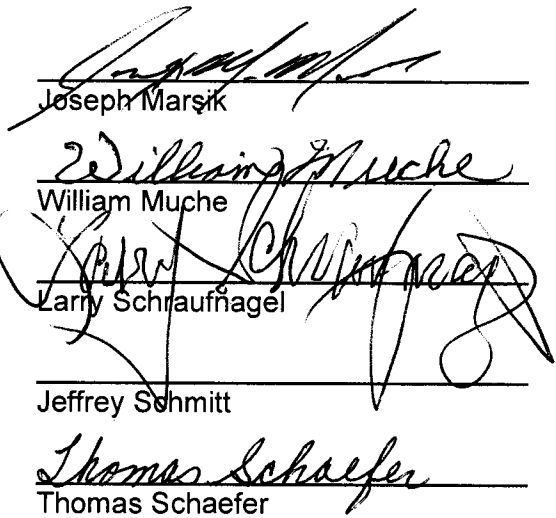 Joseph Marsik
William Muche
William Muche
Larry Schraufnagel
Larry Schraufnagel
Jeffrey Schmitt
Thomas Schaefer
Thomas Schaefer